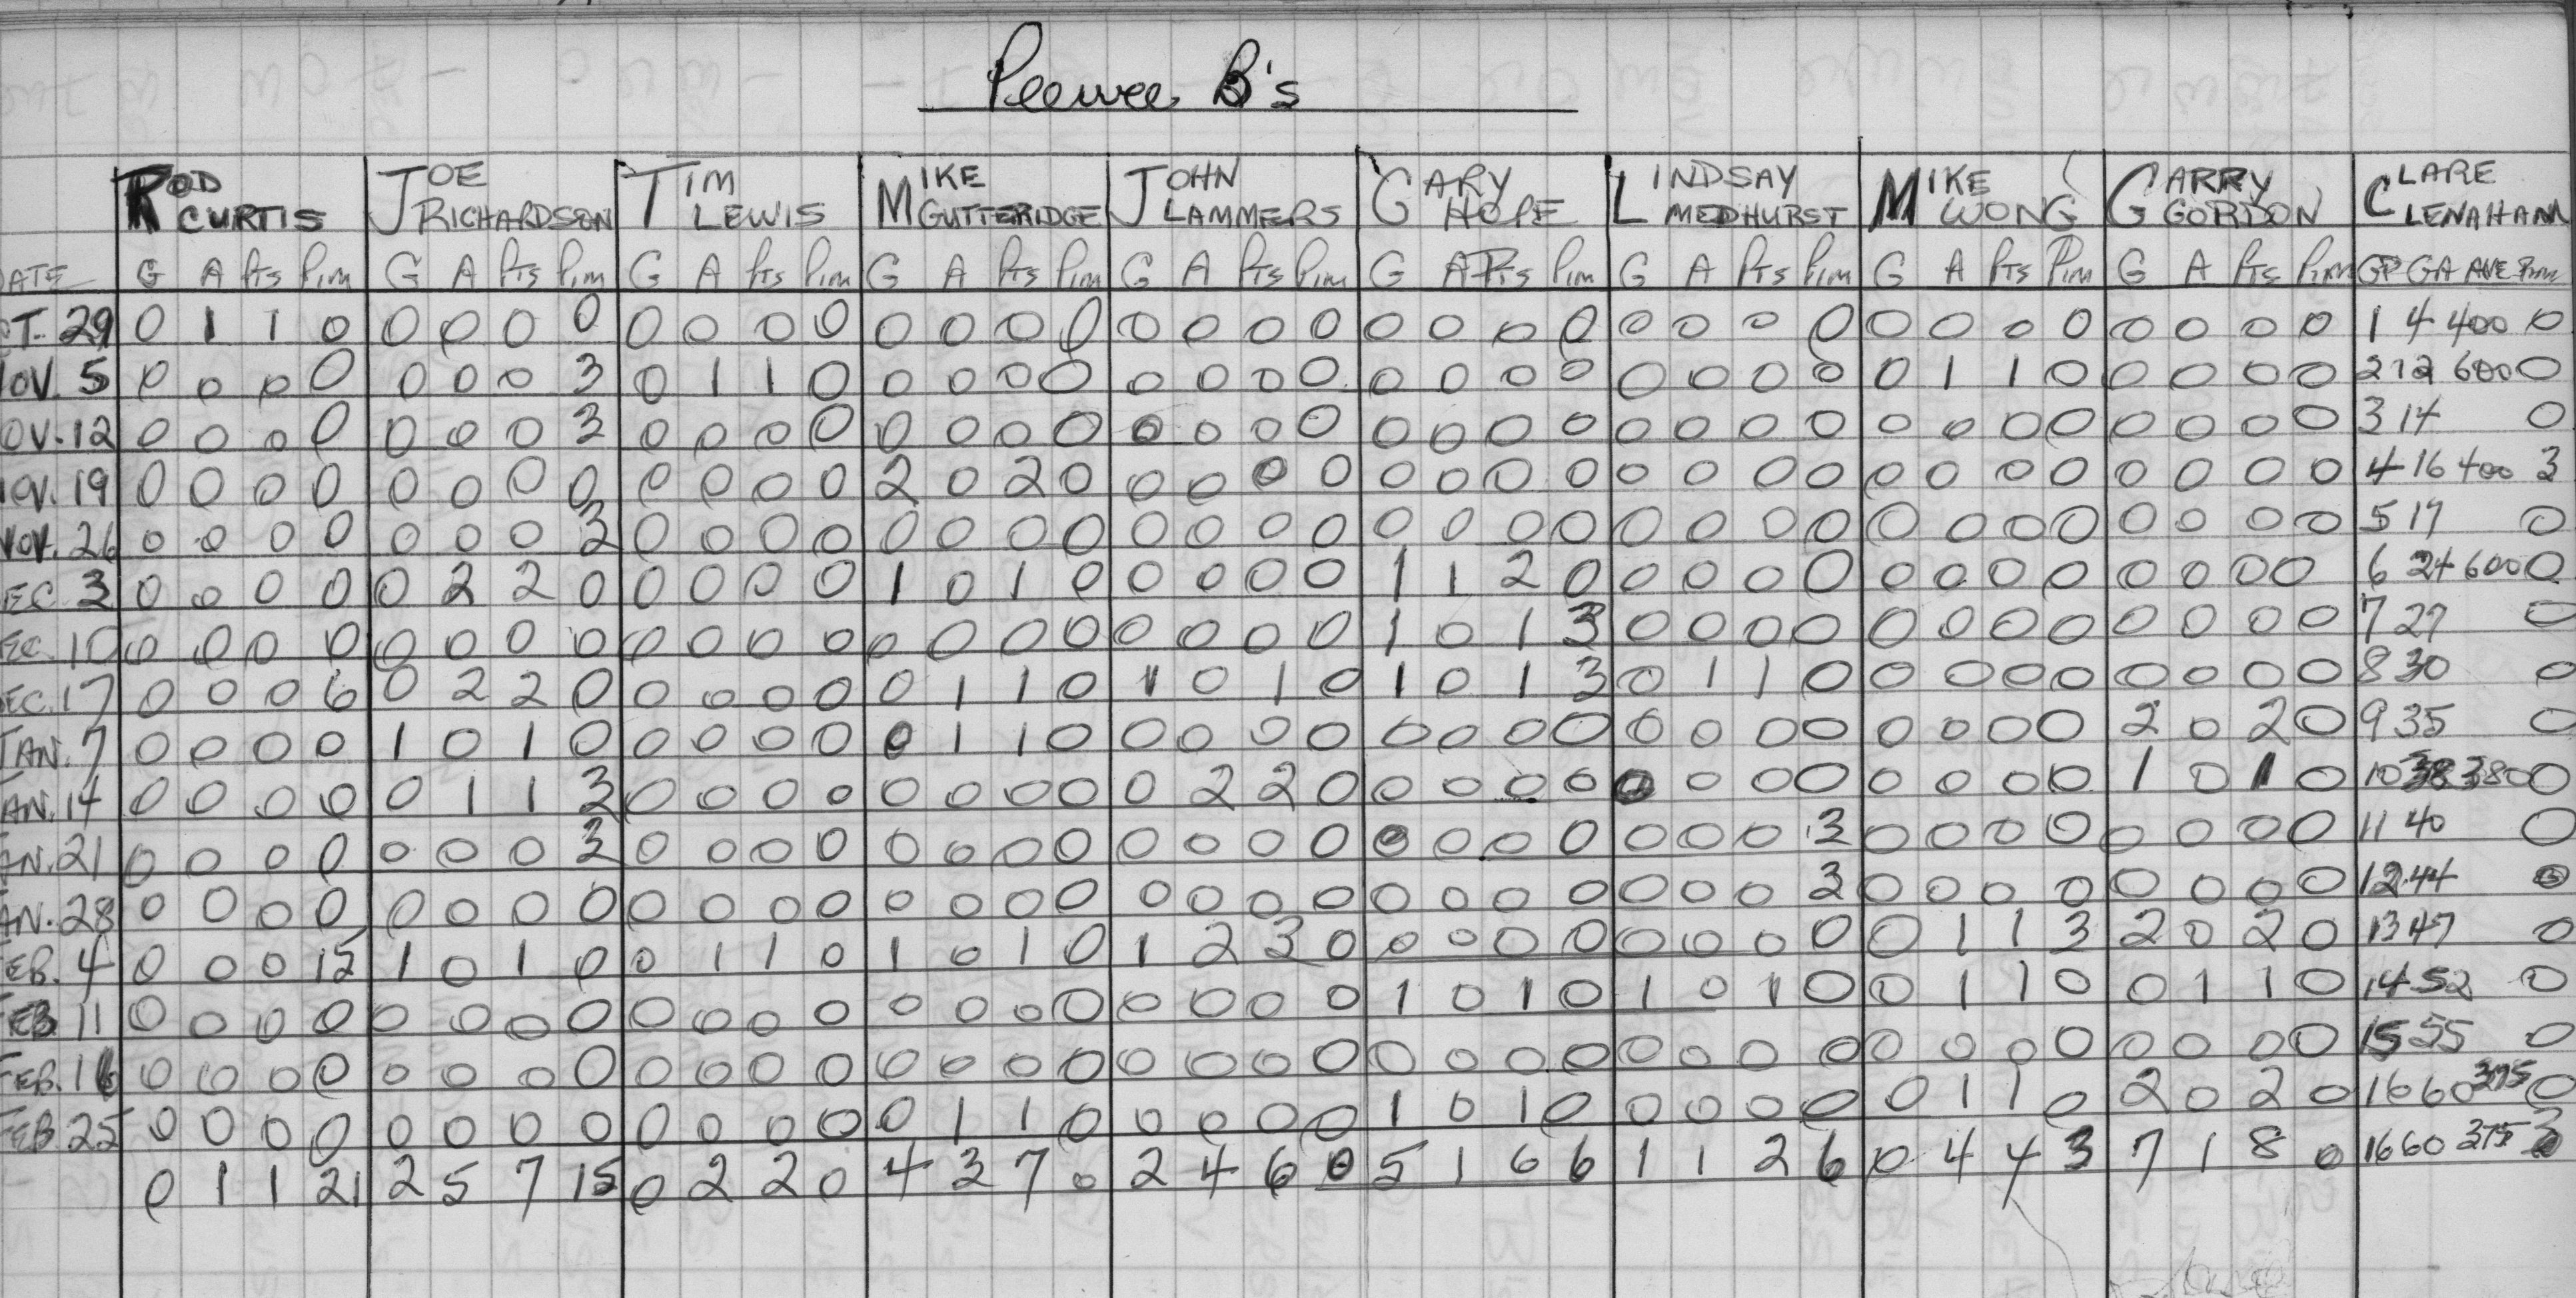 Peewee B's
ROD JOE TIM MIKE JOHN GARY LINDSAY MIKE GARRY CLARE
CURTIS RICHARDSON LEWIS GUTTERIDGE LAMMERS HOPE MEDHURST WONG GORDON CLENAHAN
DATE G A Pts Pim G A Pts Pim G A Pts Pim G A Pts Pim G A Pts Pim G A Pts Pim G A Pts Pim G A Pts Pim G A Pts Pim GP GA AVE Pim
CT. 29 0 1 1 0 0 0 0 0 0 0 0 0 0 0 0 0 0 0 0 0 0 0 0 0 0 0 0 0 0 0 0 0 0 0 0 0 1 4 400 0
NOV. 5 0 0 0 0 0 0 0 3 0 1 1 0 0 0 0 0 0 0 0 0 0 0 0 0 0 0 0 0 0 1 1 0 0 0 0 0 2 12 600 0
OV. 12 0 0 0 0 0 0 0 3 0 0 0 0 0 0 0 0 0 0 0 0 0 0 0 0 0 0 0 0 0 0 0 0 0 0 0 0 3 14 0
NOV. 19 0 0 0 0 0 0 0 0 0 0 0 0 2 0 2 0 0 0 0 0 0 0 0 0 0 0 0 0 0 0 0 0 0 0 0 0 4 16 400 3
NOV. 26 0 0 0 0 0 0 0 3 0 0 0 0 0 0 0 0 0 0 0 0 0 0 0 0 0 0 0 0 0 0 0 0 0 0 0 0 5 17 0
EC. 3 0 0 0 0 0 2 2 0 0 0 0 0 1 0 1 0 0 0 0 0 1 1 2 0 0 0 0 0 0 0 0 0 0 0 0 0 6 24 600 0
EC. 10 0 0 0 0 0 0 0 0 0 0 0 0 0 0 0 0 0 0 0 0 1 0 1 3 0 0 0 0 0 0 0 0 0 0 0 0 7 27 0
EC. 17 0 0 0 6 0 2 2 0 0 0 0 0 0 1 1 0 1 0 1 0 1 0 1 3 0 1 1 0 0 0 0 0 0 0 0 0 8 30 0
JAN. 7 0 0 0 0 1 0 1 0 0 0 0 0 0 1 1 0 0 0 0 0 0 0 0 0 0 0 0 0 0 0 0 0 2 0 2 0 9 35 0
AN. 14 0 0 0 0 0 1 1 3 0 0 0 0 0 0 0 0 0 2 2 0 0 0 0 0 0 0 0 0 0 0 0 0 1 0 1 0 10 38 380 0
AN. 21 0 0 0 0 0 0 0 3 0 0 0 0 0 0 0 0 0 0 0 0 0 0 0 0 0 0 0 3 0 0 0 0 0 0 0 0 11 40 0
AN. 28 0 0 0 0 0 0 0 0 0 0 0 0 0 0 0 0 0 0 0 0 0 0 0 0 0 0 0 3 0 0 0 0 0 0 0 0 12 44 0
EB. 4 0 0 0 15 1 0 1 0 0 1 1 0 1 0 1 0 1 2 3 0 0 0 0 0 0 0 0 0 0 1 1 3 2 0 2 0 13 47 0
FEB 11 0 0 0 0 0 0 0 0 0 0 0 0 0 0 0 0 0 0 0 0 1 0 1 0 1 0 1 0 0 1 1 0 0 1 1 0 14 52 0
FEB. 16 0 0 0 0 0 0 0 0 0 0 0 0 0 0 0 0 0 0 0 0 0 0 0 0 0 0 0 0 0 0 0 0 0 0 0 0 15 55 0
FEB 25 0 0 0 0 0 0 0 0 0 0 0 0 0 1 1 0 0 0 0 0 1 0 1 0 0 0 0 0 0 1 1 0 2 0 2 0 16 60 375 0
0 1 1 21 2 5 7 15 0 2 2 0 4 3 7 0 2 4 6 0 5 1 6 6 1 1 2 6 0 4 4 3 7 1 8 0 16 60 375 3